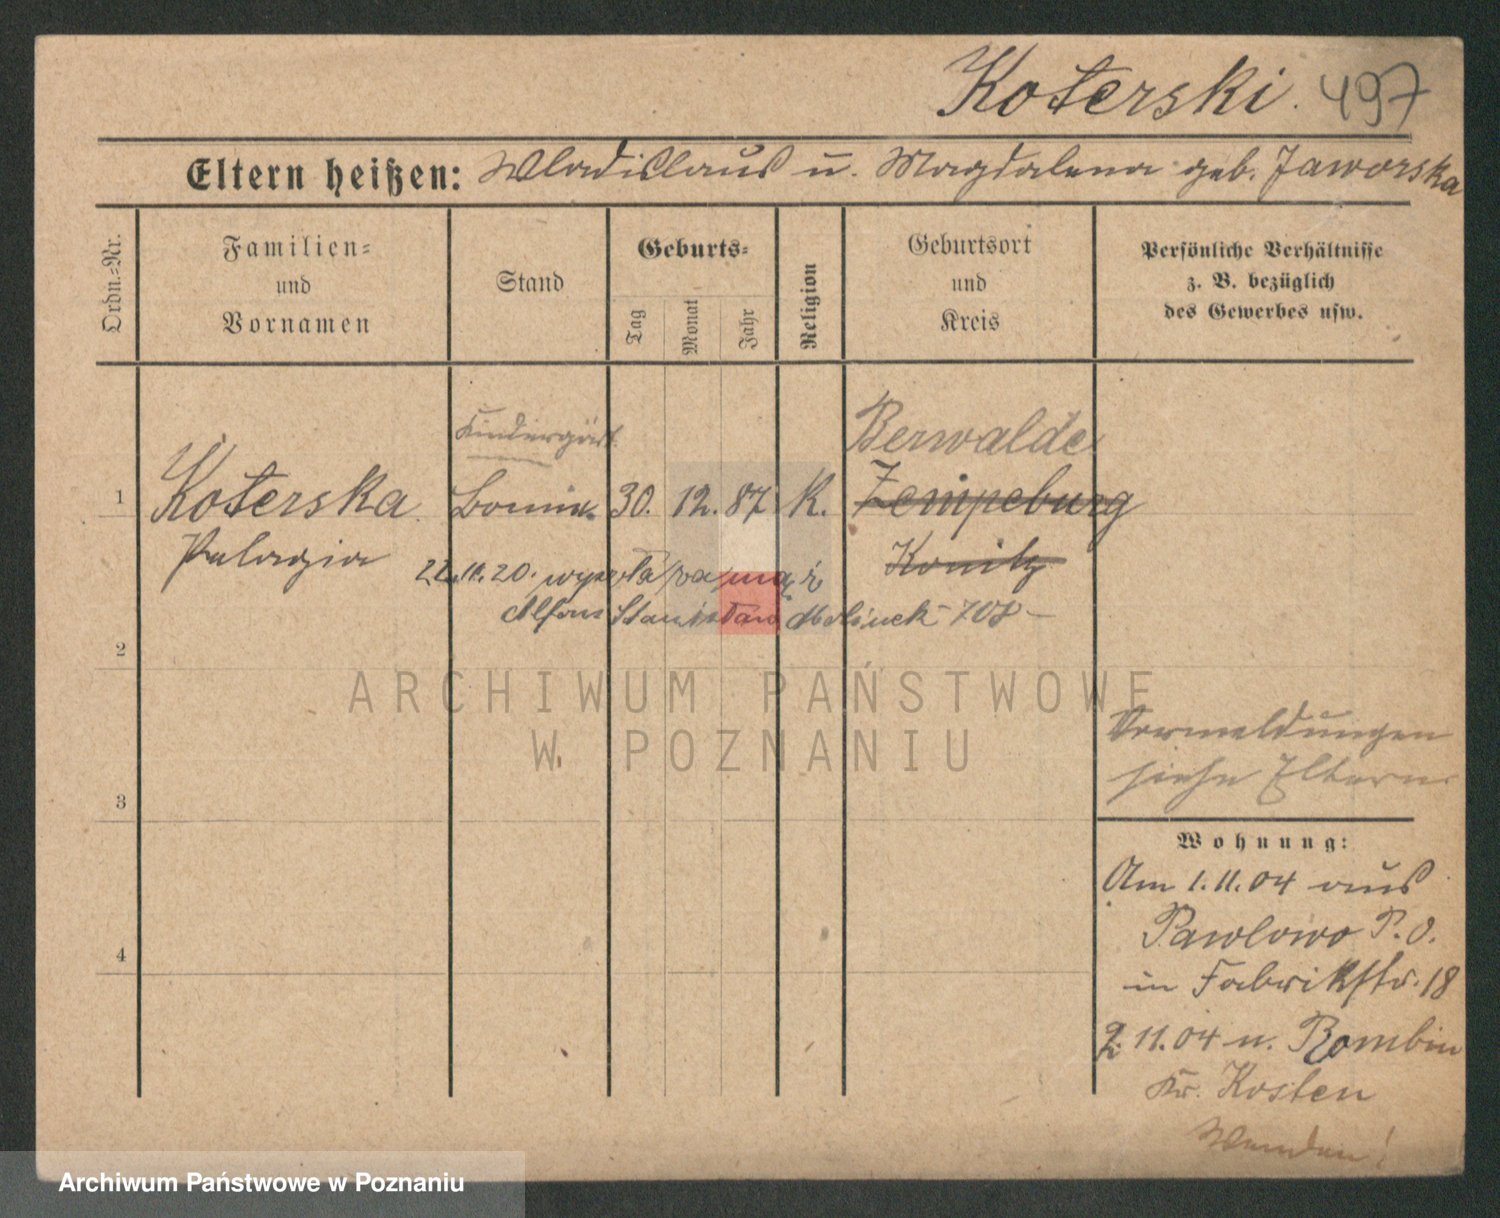 Koterski. 497
Eltern heißen: Wladislaus u. Magdalena geb. Jaworska
Ordn.-Nr.
Familien-
und
Vornamen
Stand
Geburts-
Tag
Monat
Jahr
Religion
Geburtsort
und
Kreis
Persönliche Verhältnisse
z. B. bezüglich
des Gewerbes usw.
Kindergärt.
Berwalde
1 Koterska 30. 12. 87 K. Zempeburg
Pelagia
Konitz
22.11.20. wyszła za mąż
Alfons Stanisław 708 –
2
ARCHIWUM PAŃSTWOWE
W POZNANIU
Vermeldungen
siehe Eltern
3
Wohnung:
Am 1.11.04 aus
Pawlowo P. O.
in Fabrikstr. 18
2. 11.04 n. Rombin
Kr. Kosten
Wenden!
4
Archiwum Państwowe w Poznaniu